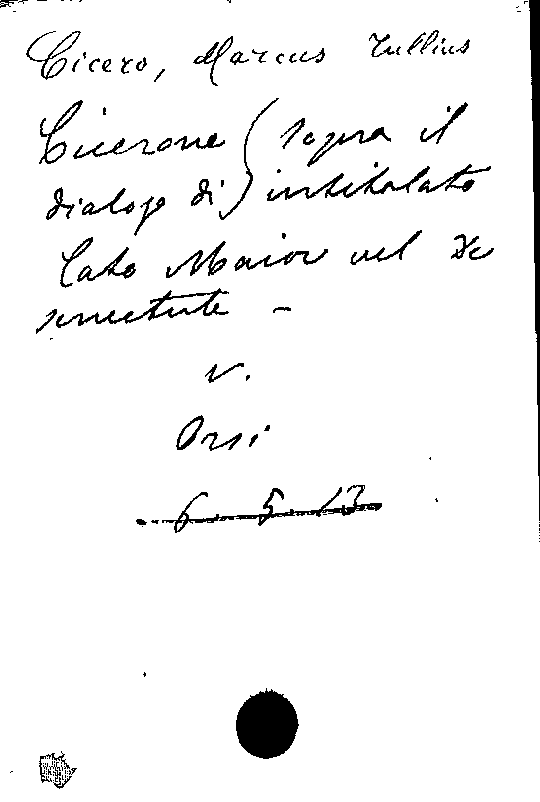 Cicero, Marcus Tullius
Cicerone (sopra il
dialogo di) intitolato
Cato Maior vel De
senectute -
v.
Orsi
6 5 13